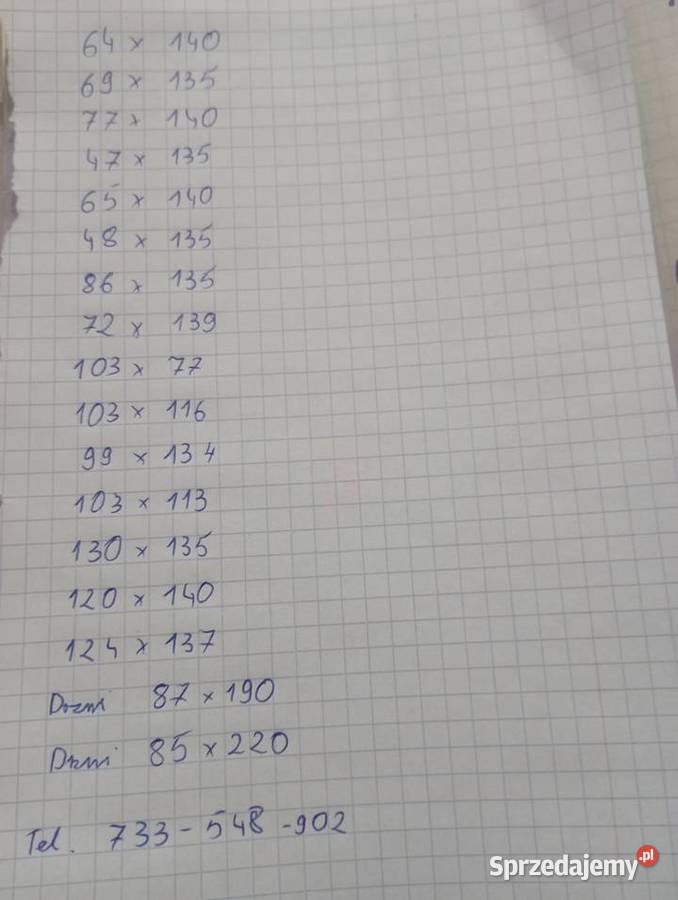 64 x 140
69 x 135
77 x 140
47 x 135
65 x 140
48 x 135
86 x 135
72 x 139
103 x 77
103 x 116
99 x 134
103 x 113
130 x 135
120 x 140
124 x 137
Drzwi 87 x 190
Drzwi 85 x 220
Tel. 733-548-902
Sprzedajemy.pl